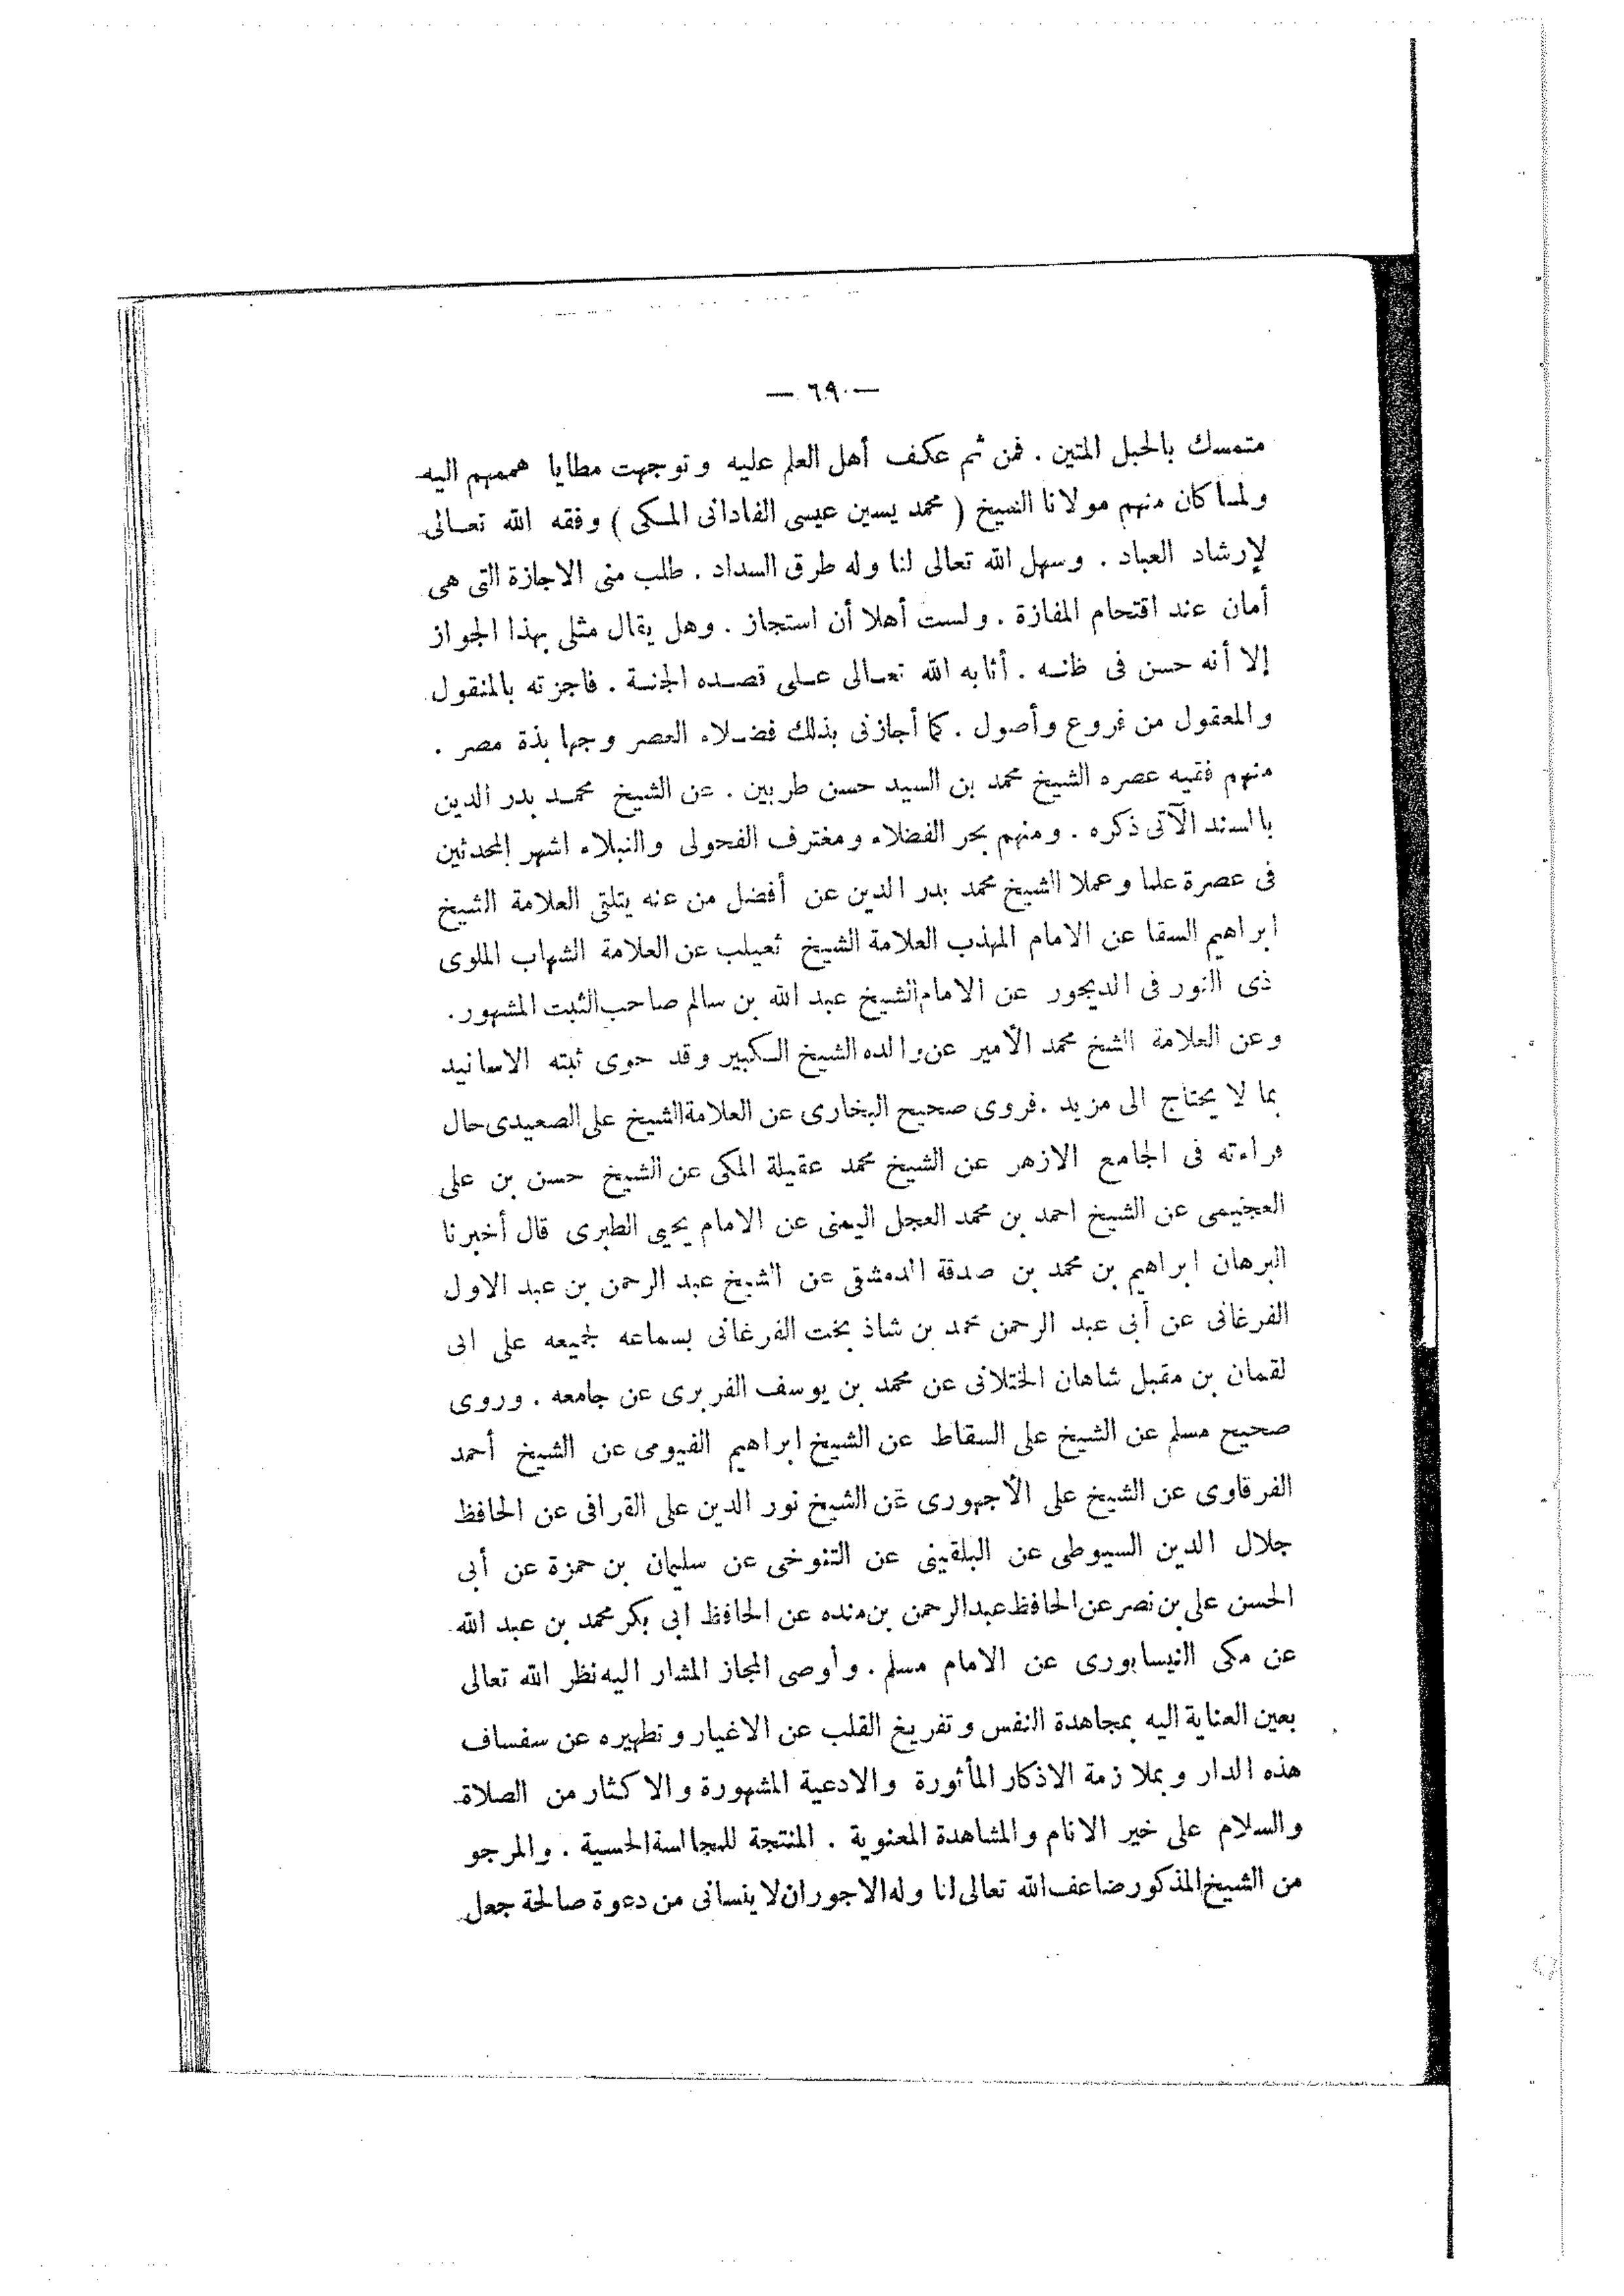 — ٦٩ —
متمسك بالحبل المتين . فمن ثم عكف أهل العلم عليه وتوجهت مطايا هممهم اليه
ولما كان منهم مولانا الشيخ ( محمد يسين عيسى الفاداني المكى ) وفقه الله تعالى
لإرشاد العباد . وسهل الله تعالى لنا وله طرق السداد . طلب منى الاجازة التى هى
أمان عند اقتحام المفازة . ولست أهلا أن استجاز . وهل يقال مثلى بهذا الجواز
إلا أنه حسن فى ظنه . أثابه الله تعالى على قصده الجنة . فاجزته بالمنقول
والمعقول من فروع وأصول . كما أجازنى بذلك فضلاء العصر وجها بذة مصر .
منهم فقيه عصره الشيخ محمد بن السيد حسن طربين . عن الشيخ محمد بدر الدين
بالسند الآتى ذكره . ومنهم بحر الفضلاء ومغترف الفحولى والنبلاء اشهر المحدثين
فى عصرة علما وعملا الشيخ محمد بدر الدين عن أفضل من عنه يتلقى العلامة الشيخ
ابراهيم السقا عن الامام المهذب العلامة الشيخ ثعيلب عن العلامة الشهاب الملوى
ذى النور فى الديجور عن الامام الشيخ عبد الله بن سالم صاحب الثبت المشهور .
وعن العلامة الشخ محمد الأمير عن والده الشيخ الكبير وقد حوى ثبته الاسانيد
بما لا يحتاج الى مزيد . فروى صحيح البخارى عن العلامة الشيخ على الصعيدى حال
قراءته فى الجامع الازهر عن الشيخ محمد عقيلة المكى عن الشيخ حسن بن على
العجيمى عن الشيخ احمد بن محمد العجل اليمنى عن الامام يحيى الطبرى قال أخبرنا
البرهان ابراهيم بن محمد بن صدقة الدمشقى عن الشيخ عبد الرحمن بن عبد الاول
الفرغانى عن أبى عبد الرحمن محمد بن شاذ بخت الفرغانى بسماعه لجميعه على ابى
لقمان بن مقبل شاهان الختلانى عن محمد بن يوسف الفربرى عن جامعه . وروى
صحيح مسلم عن الشيخ على السقاط عن الشيخ ابراهيم الفيومى عن الشيخ أحمد
الفرقاوى عن الشيخ على الأجهورى عن الشيخ نور الدين على القرافى عن الحافظ
جلال الدين السيوطى عن البلقينى عن التنوخى عن سليمان بن حمزة عن أبى
الحسن على بن نصر عن الحافظ عبد الرحمن بن منده عن الحافظ ابى بكر محمد بن عبد الله
عن مكى النيسابورى عن الامام مسلم . وأوصى المجاز المشار اليه نظر الله تعالى
بعين العناية اليه بمجاهدة النفس وتفريخ القلب عن الاغيار وتطهيره عن سفساف
هذه الدار وبملازمة الاذكار المأثورة والادعية المشهورة والاكثار من الصلاة
والسلام على خير الانام والمشاهدة المعنوية . المنتجة للمجالسة الحسية . والمرجو
من الشيخ المذكور ضاعف الله تعالى لنا وله الاجور ان لا ينسانى من دعوة صالحة جعل